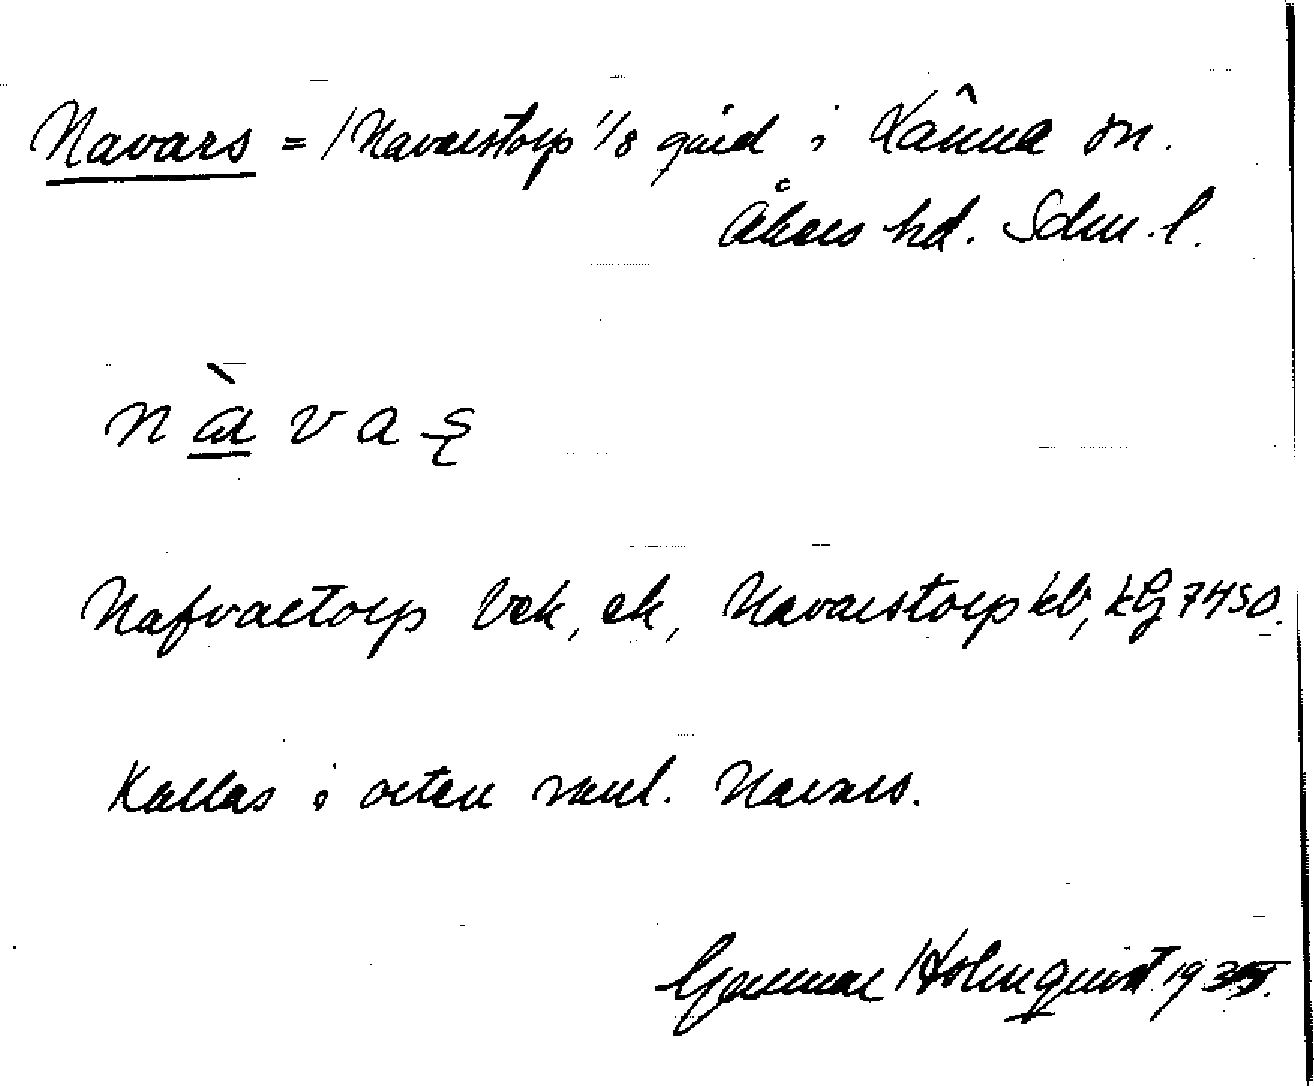 Navars = /Navarstorp 1/8 gård i Länna sn.
Åkers hd. Sdm. l.
nàvaş
Nafvartorp Vek, ek, Navarstorp kb, kG 7450.
Kallas i orten vanl. Navars.
Gunnar Holmquist 193